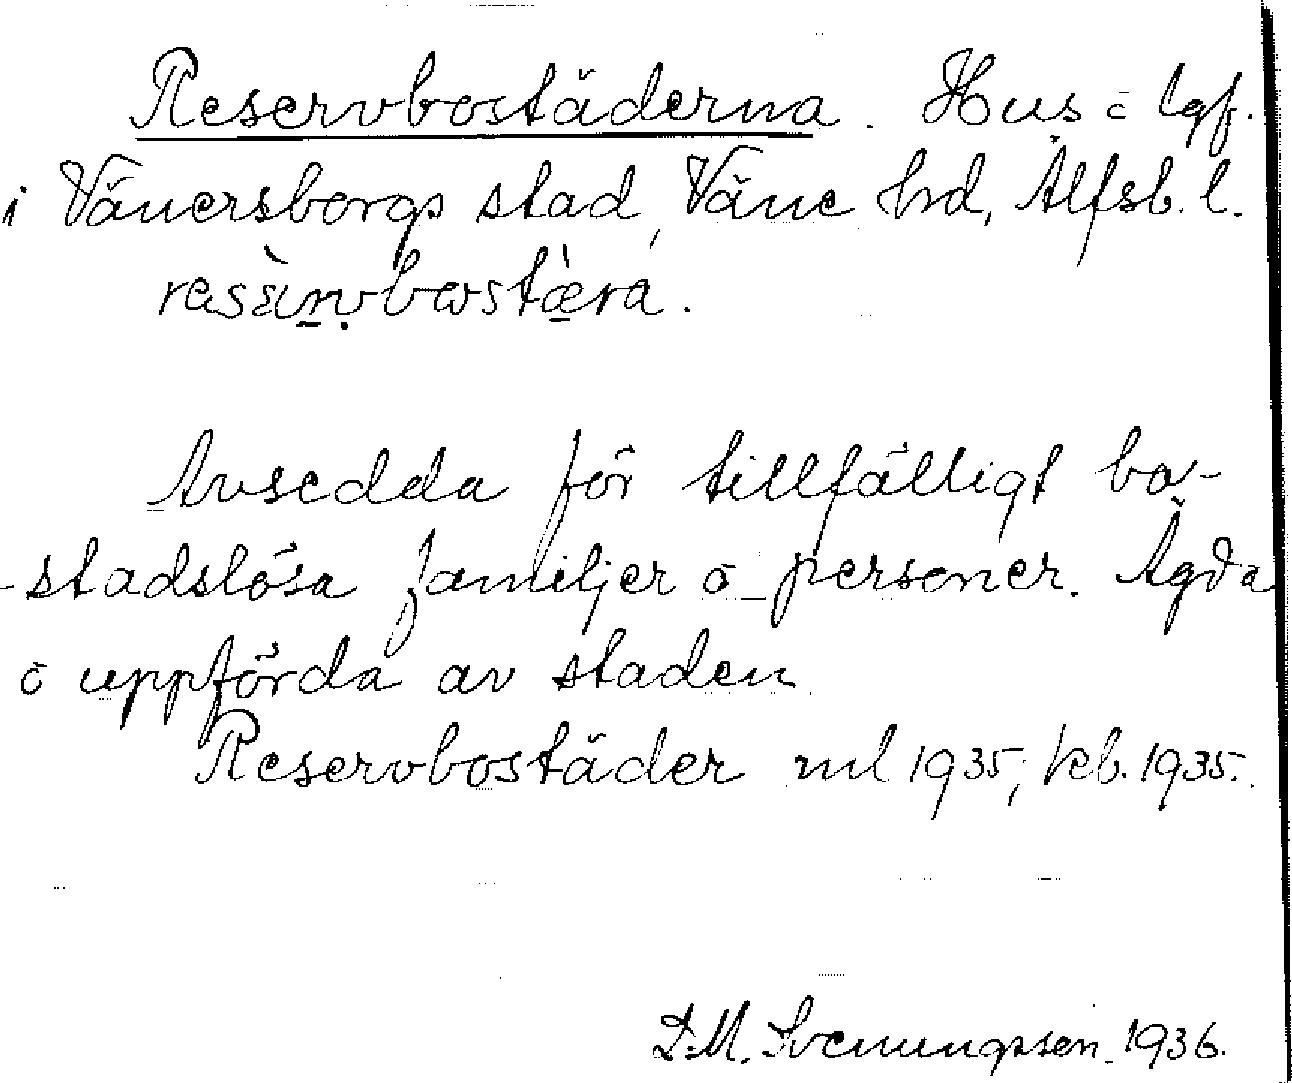 Reservbostäderna. Hus = lgf.
i Vänersborgs stad, Väne hrd, Älfsb. l.
Avsedda för tillfälligt bo-
stadslösa familjer o personer. Ägda
o uppförda av staden
Reservbostäder ml 1935, kb. 1935.
D. M. Svenungsson 1936.